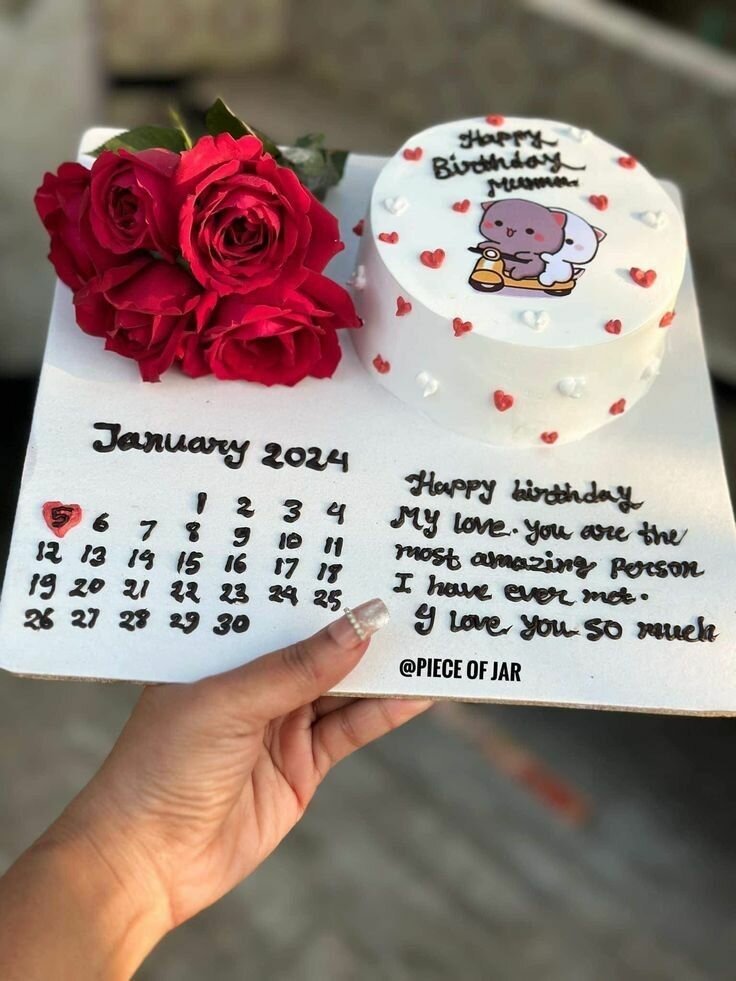 Happy
Birthday
Mumma
January 2024
1 2 3 4
5 6 7 8 9 10 11
12 13 14 15 16 17 18
19 20 21 22 23 24 25
26 27 28 29 30
Happy birthday
My love. You are the
most amazing person
I have ever met.
I love you so much
@PIECE OF JAR